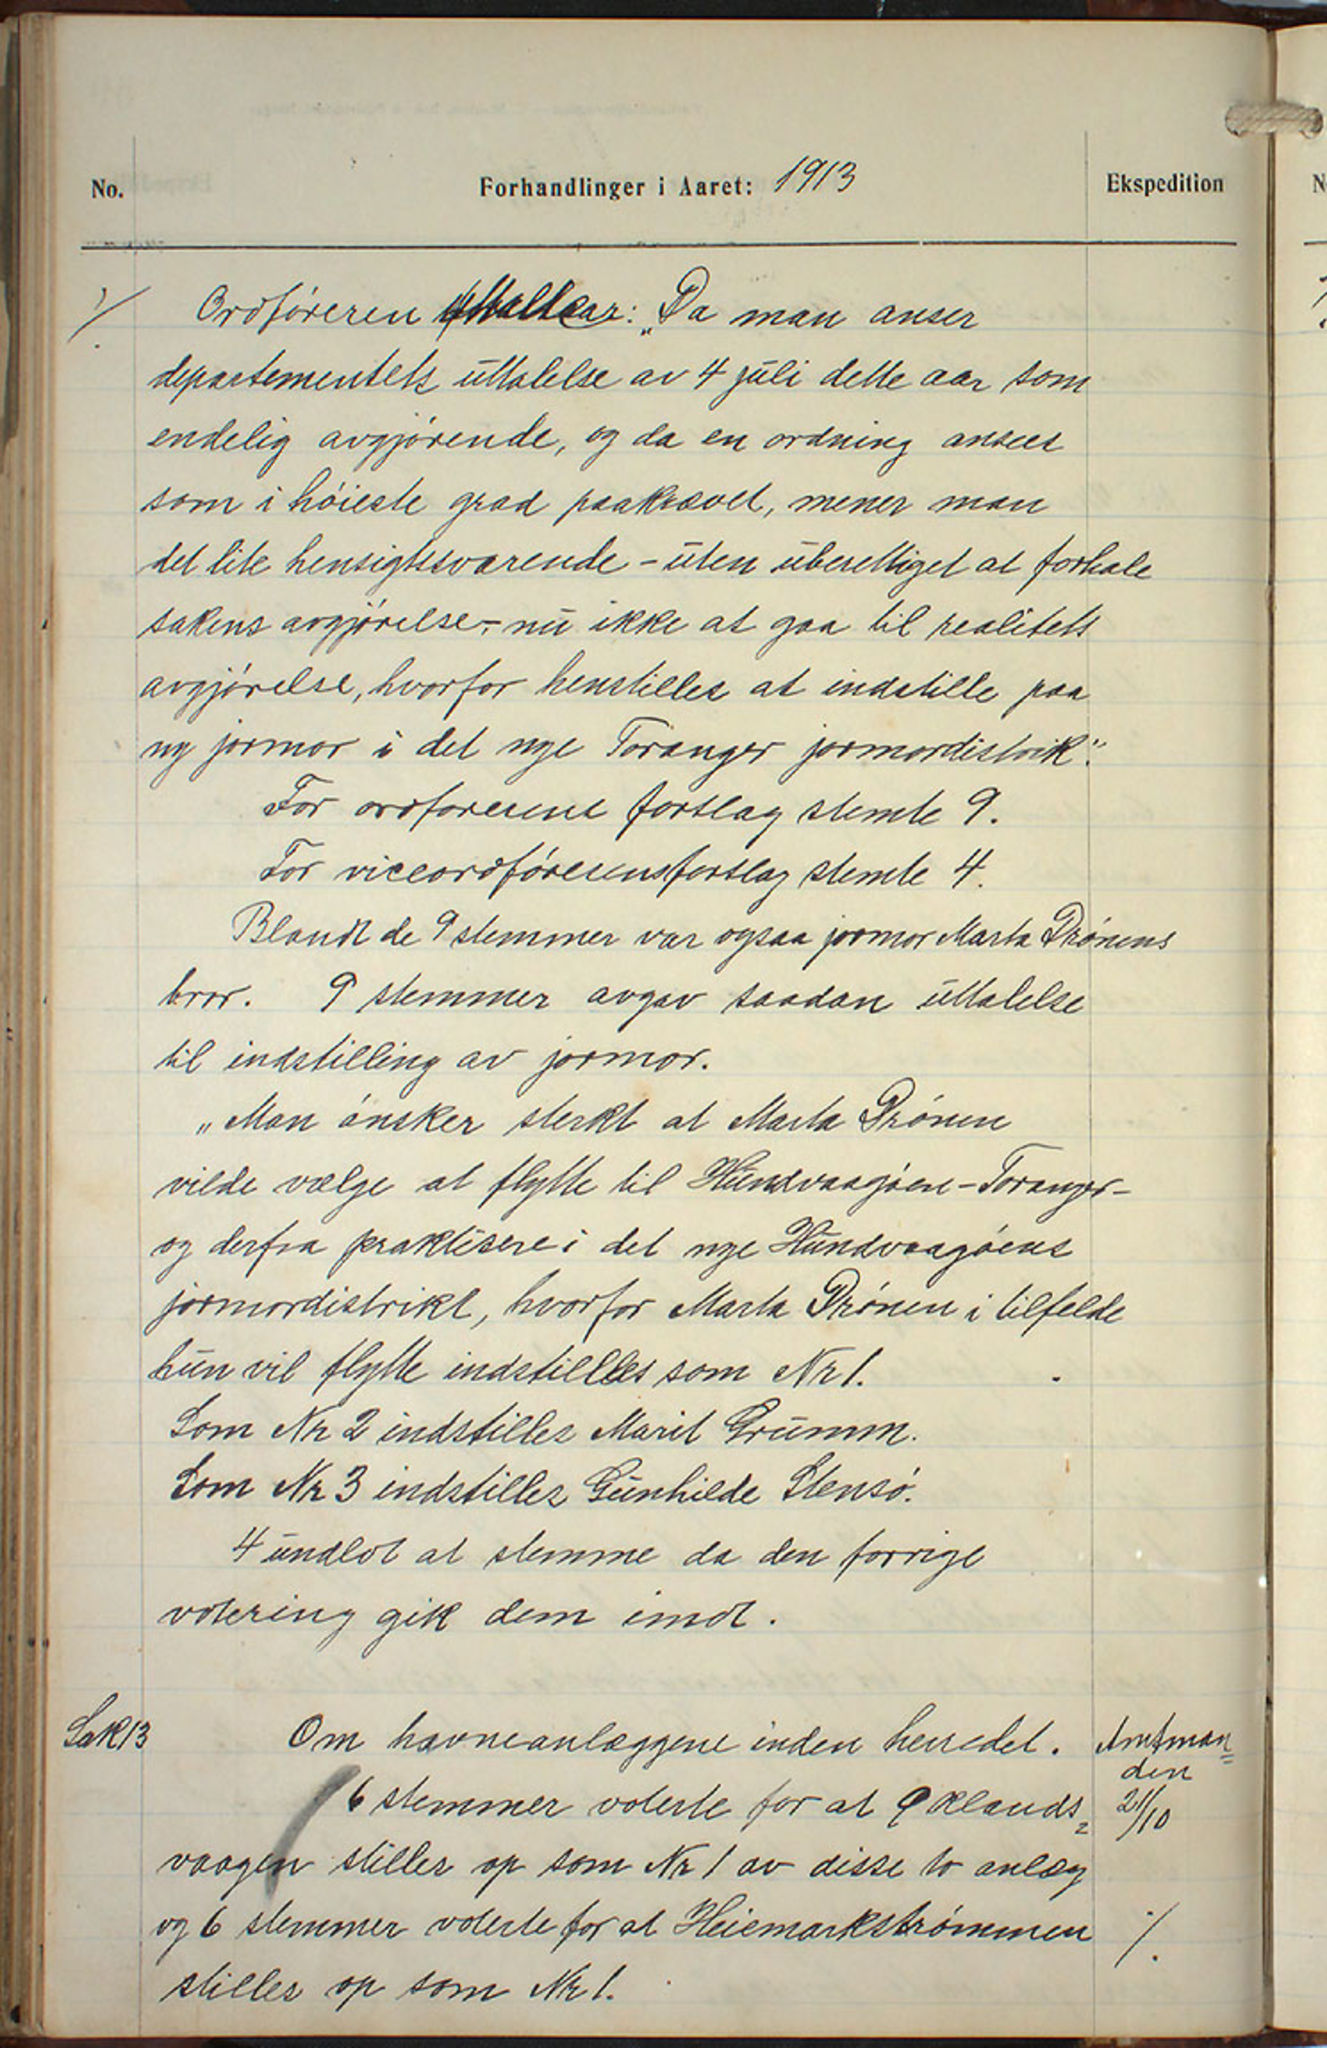 No.
Forhandlinger i Aaret: 1913
Ekspedition
./.
Ordføreren uttaler: „Da man anser
departementets uttalelse av 4 juli dette aar som
endelig avgjørende, og da en ordning ansees
som i høieste grad paakrævet, mener man
det lite hensigtssvarende - uten uberettiget at forhale
sakens avgjørelse - nu ikke at gaa til realitets
avgjørelse, hvorfor henstilles at indstille paa
ny jormor i det nye Toranger jormordistrik".
For ordførerens forslag stemte 9.
For viceordførerens forslag stemte 4.
Blandt de 9 stemmer var ogsaa jormor Marta Drønens
bror. 9 stemmer avgav saadan uttalelse
til indstilling av jormor.
„Man ønsker sterkt at Marta Drønen
vilde vælge at flytte til Hundvaagøen - Toranger -
og derfra praktisere i det nye Hundvaagøens
jormordistrikt, hvorfor Marta Drønen i tilfelde
hun vil flytte indstilles som Nr 1.
Som Nr 2 indstilles Marit Grumm.
Som Nr 3 indstilles Gunhilde Stensø.
4 undlot at stemme da den forrige
votering gik dem imot.
Sak 13
Om havneanlæggene inden herredet.
Amtman=
den
21/10
6 stemmer voterte for at Øklands=
vaagen stilles op som Nr 1 av disse to anlæg
og 6 stemmer voterte for at Heiemarkstrømmen
./.
stilles op som Nr 1.